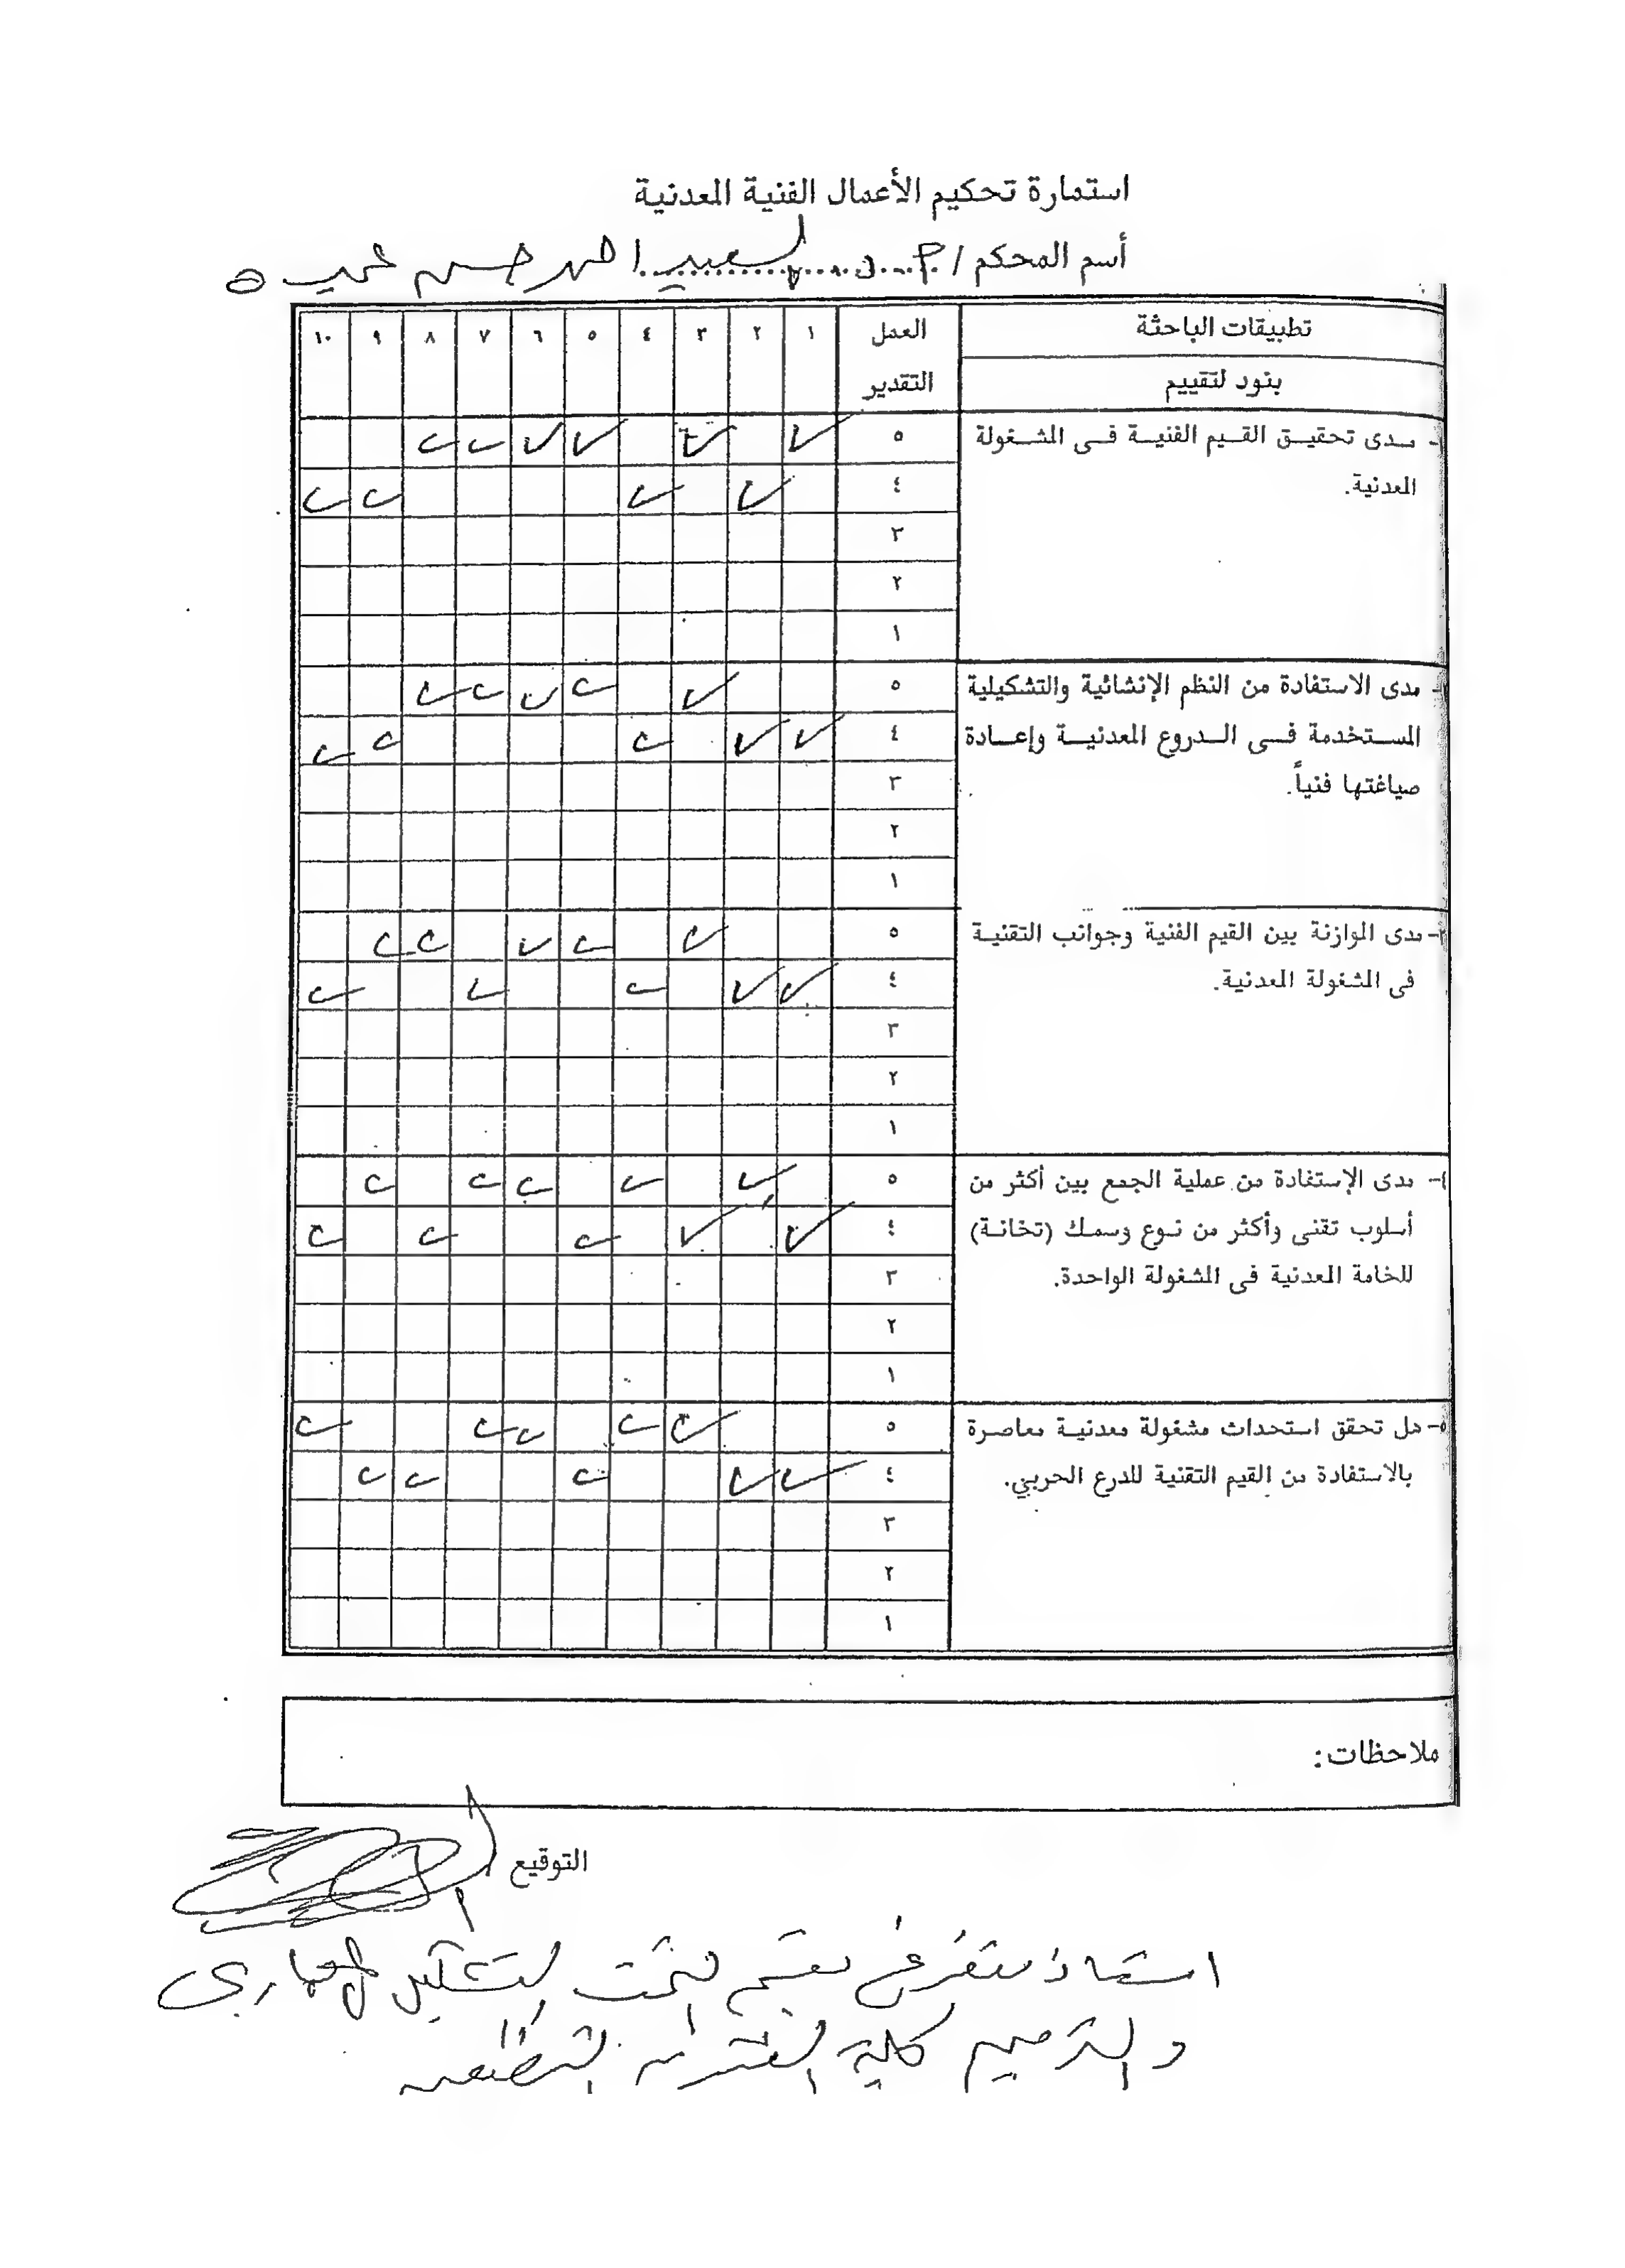 استمارة تحكيم الأعمال الفنية المعدنية
أسم المحكم / السعيد احمد حسن
تطبيقات الباحثة
العمل ١ ٢ ٣ ٤ ٥ ٦ ٧ ٨ ٩ ١٠
بنود لتقييم
التقدير
- مدى تحقيق القيم الفنية فى المشغولة ٥ ✓ ✓ ✓ ✓ ✓ ✓
المعدنية. ٤ ✓ ✓ ✓ ✓
٣
٢
١
- مدى الاستفادة من النظم الإنشائية والتشكيلية ٥ ✓ ✓ ✓ ✓ ✓
المستخدمة فى الدروع المعدنية وإعادة ٤ ✓ ✓ ✓ ✓ ✓
صياغتها فنياً. ٣
٢
١
٣- مدى الموازنة بين القيم الفنية وجوانب التقنية ٥ ✓ ✓ ✓ ✓ ✓
فى المشغولة المعدنية. ٤ ✓ ✓ ✓ ✓ ✓
٣
٢
١
٤- مدى الإستفادة من عملية الجمع بين أكثر من ٥ ✓ ✓ ✓ ✓ ✓
أسلوب تقنى وأكثر من نوع وسمك (تخانة) ٤ ✓ ✓ ✓ ✓ ✓
للخامة المعدنية فى المشغولة الواحدة. ٣
٢
١
٥- هل تحقق استحداث مشغولة معدنية معاصرة ٥ ✓ ✓ ✓ ✓ ✓
بالاستفادة من القيم التقنية للدرع الحربي. ٤ ✓ ✓ ✓ ✓ ✓
٣
٢
١
ملاحظات:
التوقيع
استاذ متفرغ بقسم النحت التشكيل المعمارى
والترميم كلية الفنون التطبيقية